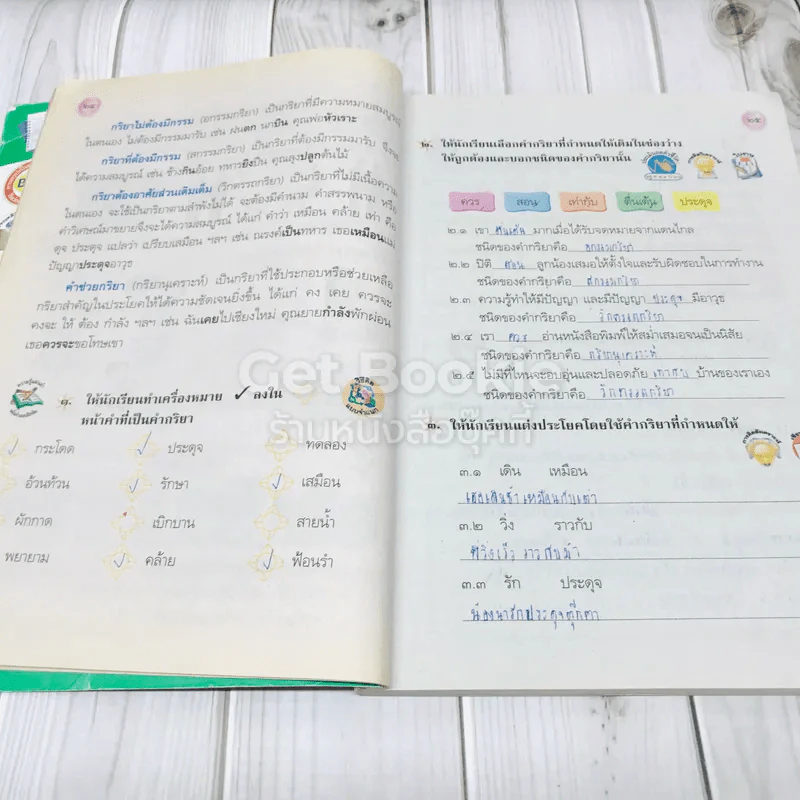 ๒๔
กริยาไม่ต้องมีกรรม (อกรรมกริยา) เป็นกริยาที่มีความหมายสมบูรณ์
ในตนเอง ไม่ต้องมีกรรมมารับ เช่น ฝนตก นกบิน คุณพ่อหัวเราะ
กริยาที่ต้องมีกรรม (สกรรมกริยา) เป็นกริยาที่ต้องมีกรรมมารับ จึงจะ
ได้ความสมบูรณ์ เช่น ช้างกินอ้อย ทหารยิงปืน คุณลุงปลูกต้นไม้
กริยาต้องอาศัยส่วนเติมเต็ม (วิกตรรถกริยา) เป็นกริยาที่ไม่มีเนื้อความ
ในตนเอง จะใช้เป็นกริยาตามลำพังไม่ได้ จะต้องมีคำนาม คำสรรพนาม หรือ
คำวิเศษณ์มาขยายจึงจะได้ความสมบูรณ์ ได้แก่ คำว่า เหมือน คล้าย เท่า คือ
ดุจ ประดุจ แปลว่า เปรียบเสมือน ฯลฯ เช่น ณรงค์เป็นทหาร เธอเหมือนแม่
ปัญญาประดุจอาวุธ
คำช่วยกริยา (กริยานุเคราะห์) เป็นกริยาที่ใช้ประกอบหรือช่วยเหลือ
กริยาสำคัญในประโยคให้ได้ความชัดเจนยิ่งขึ้น ได้แก่ คง เคย ควรจะ
คงจะ ให้ ต้อง กำลัง ฯลฯ เช่น ฉันเคยไปเชียงใหม่ คุณยายกำลังพักผ่อน
เธอควรจะขอโทษเขา
๑. ให้นักเรียนทำเครื่องหมาย ✓ ลงใน
หน้าคำที่เป็นคำกริยา
✓ กระโดด ✓ ประดุจ ทดลอง
อ้วนท้วน ✓ รักษา ✓ เสมือน
ผักกาด เบิกบาน สายน้ำ
พยายาม ✓ คล้าย ✓ ฟ้อนรำ
๒๕
๒. ให้นักเรียนเลือกคำกริยาที่กำหนดให้เติมในช่องว่าง
ให้ถูกต้องและบอกชนิดของคำกริยานั้น
ควร สอน เท่ากับ ตื่นเต้น ประดุจ
๒.๑ เขา ตื่นเต้น มากเมื่อได้รับจดหมายจากแดนไกล
ชนิดของคำกริยาคือ อกรรมกริยา
๒.๒ ปิติ สอน ลูกน้องเสมอให้ตั้งใจและรับผิดชอบในการทำงาน
ชนิดของคำกริยาคือ สกรรมกริยา
๒.๓ ความรู้ทำให้มีปัญญา และมีปัญญา ประดุจ มีอาวุธ
ชนิดของคำกริยาคือ วิกตรรถกริยา
๒.๔ เรา ควร อ่านหนังสือพิมพ์ให้สม่ำเสมอจนเป็นนิสัย
ชนิดของคำกริยาคือ กริยานุเคราะห์
๒.๕ ไม่มีที่ไหนจะอบอุ่นและปลอดภัย เท่ากับ บ้านของเราเอง
ชนิดของคำกริยาคือ วิกตรรถกริยา
๓. ให้นักเรียนแต่งประโยคโดยใช้คำกริยาที่กำหนดให้
๓.๑ เดิน เหมือน
เธอเดินช้าเหมือนกับเต่า
๓.๒ วิ่ง ราวกับ
วิ่งเร็วราวกับม้า
๓.๓ รัก ประดุจ
น้องน่ารักประดุจตุ๊กตา
Get Bookie
ร้านหนังสือบุ๊คกี้